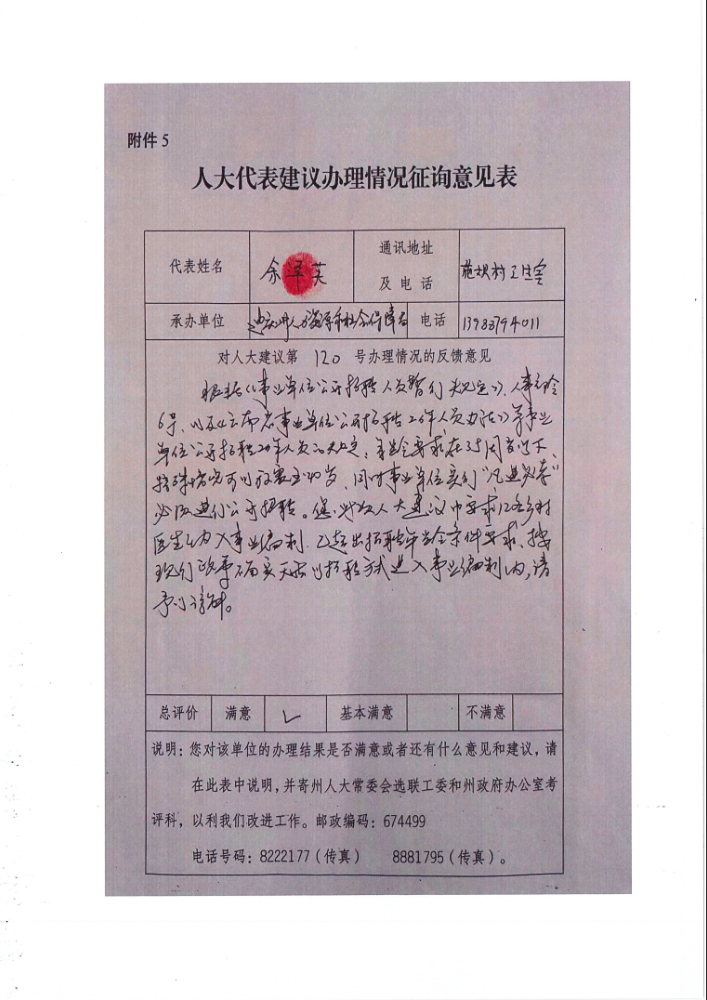 附件 5
人大代表建议办理情况征询意见表
代表姓名 余泽英 通讯地址及电话 村卫生室
承办单位 迪庆州人力资源和社会保障局 电话
对人大建议第 120 号办理情况的反馈意见
根据《事业单位公开招聘人员暂行规定》人事部令
6号、以及《云南省事业单位公开招聘工作人员办法》等事业
单位公开招聘工作人员的规定,年龄要求在35周岁以下、
特殊情况可以放宽至40岁,同时事业单位实行“凡进必考”
必须进行公开招聘。您人大建议中要求乡村
医生纳入事业编制,已超出招聘年龄条件要求,按
现行政策确实无法以招聘方式进入事业编制内,请
予以谅解。
总评价 满意 ✓ 基本满意 不满意
说明:您对该单位的办理结果是否满意或者还有什么意见和建议,请
在此表中说明,并寄州人大常委会选联工委和州政府办公室考
评科,以利我们改进工作。邮政编码:674499
电话号码:8222177(传真) 8881795(传真)。